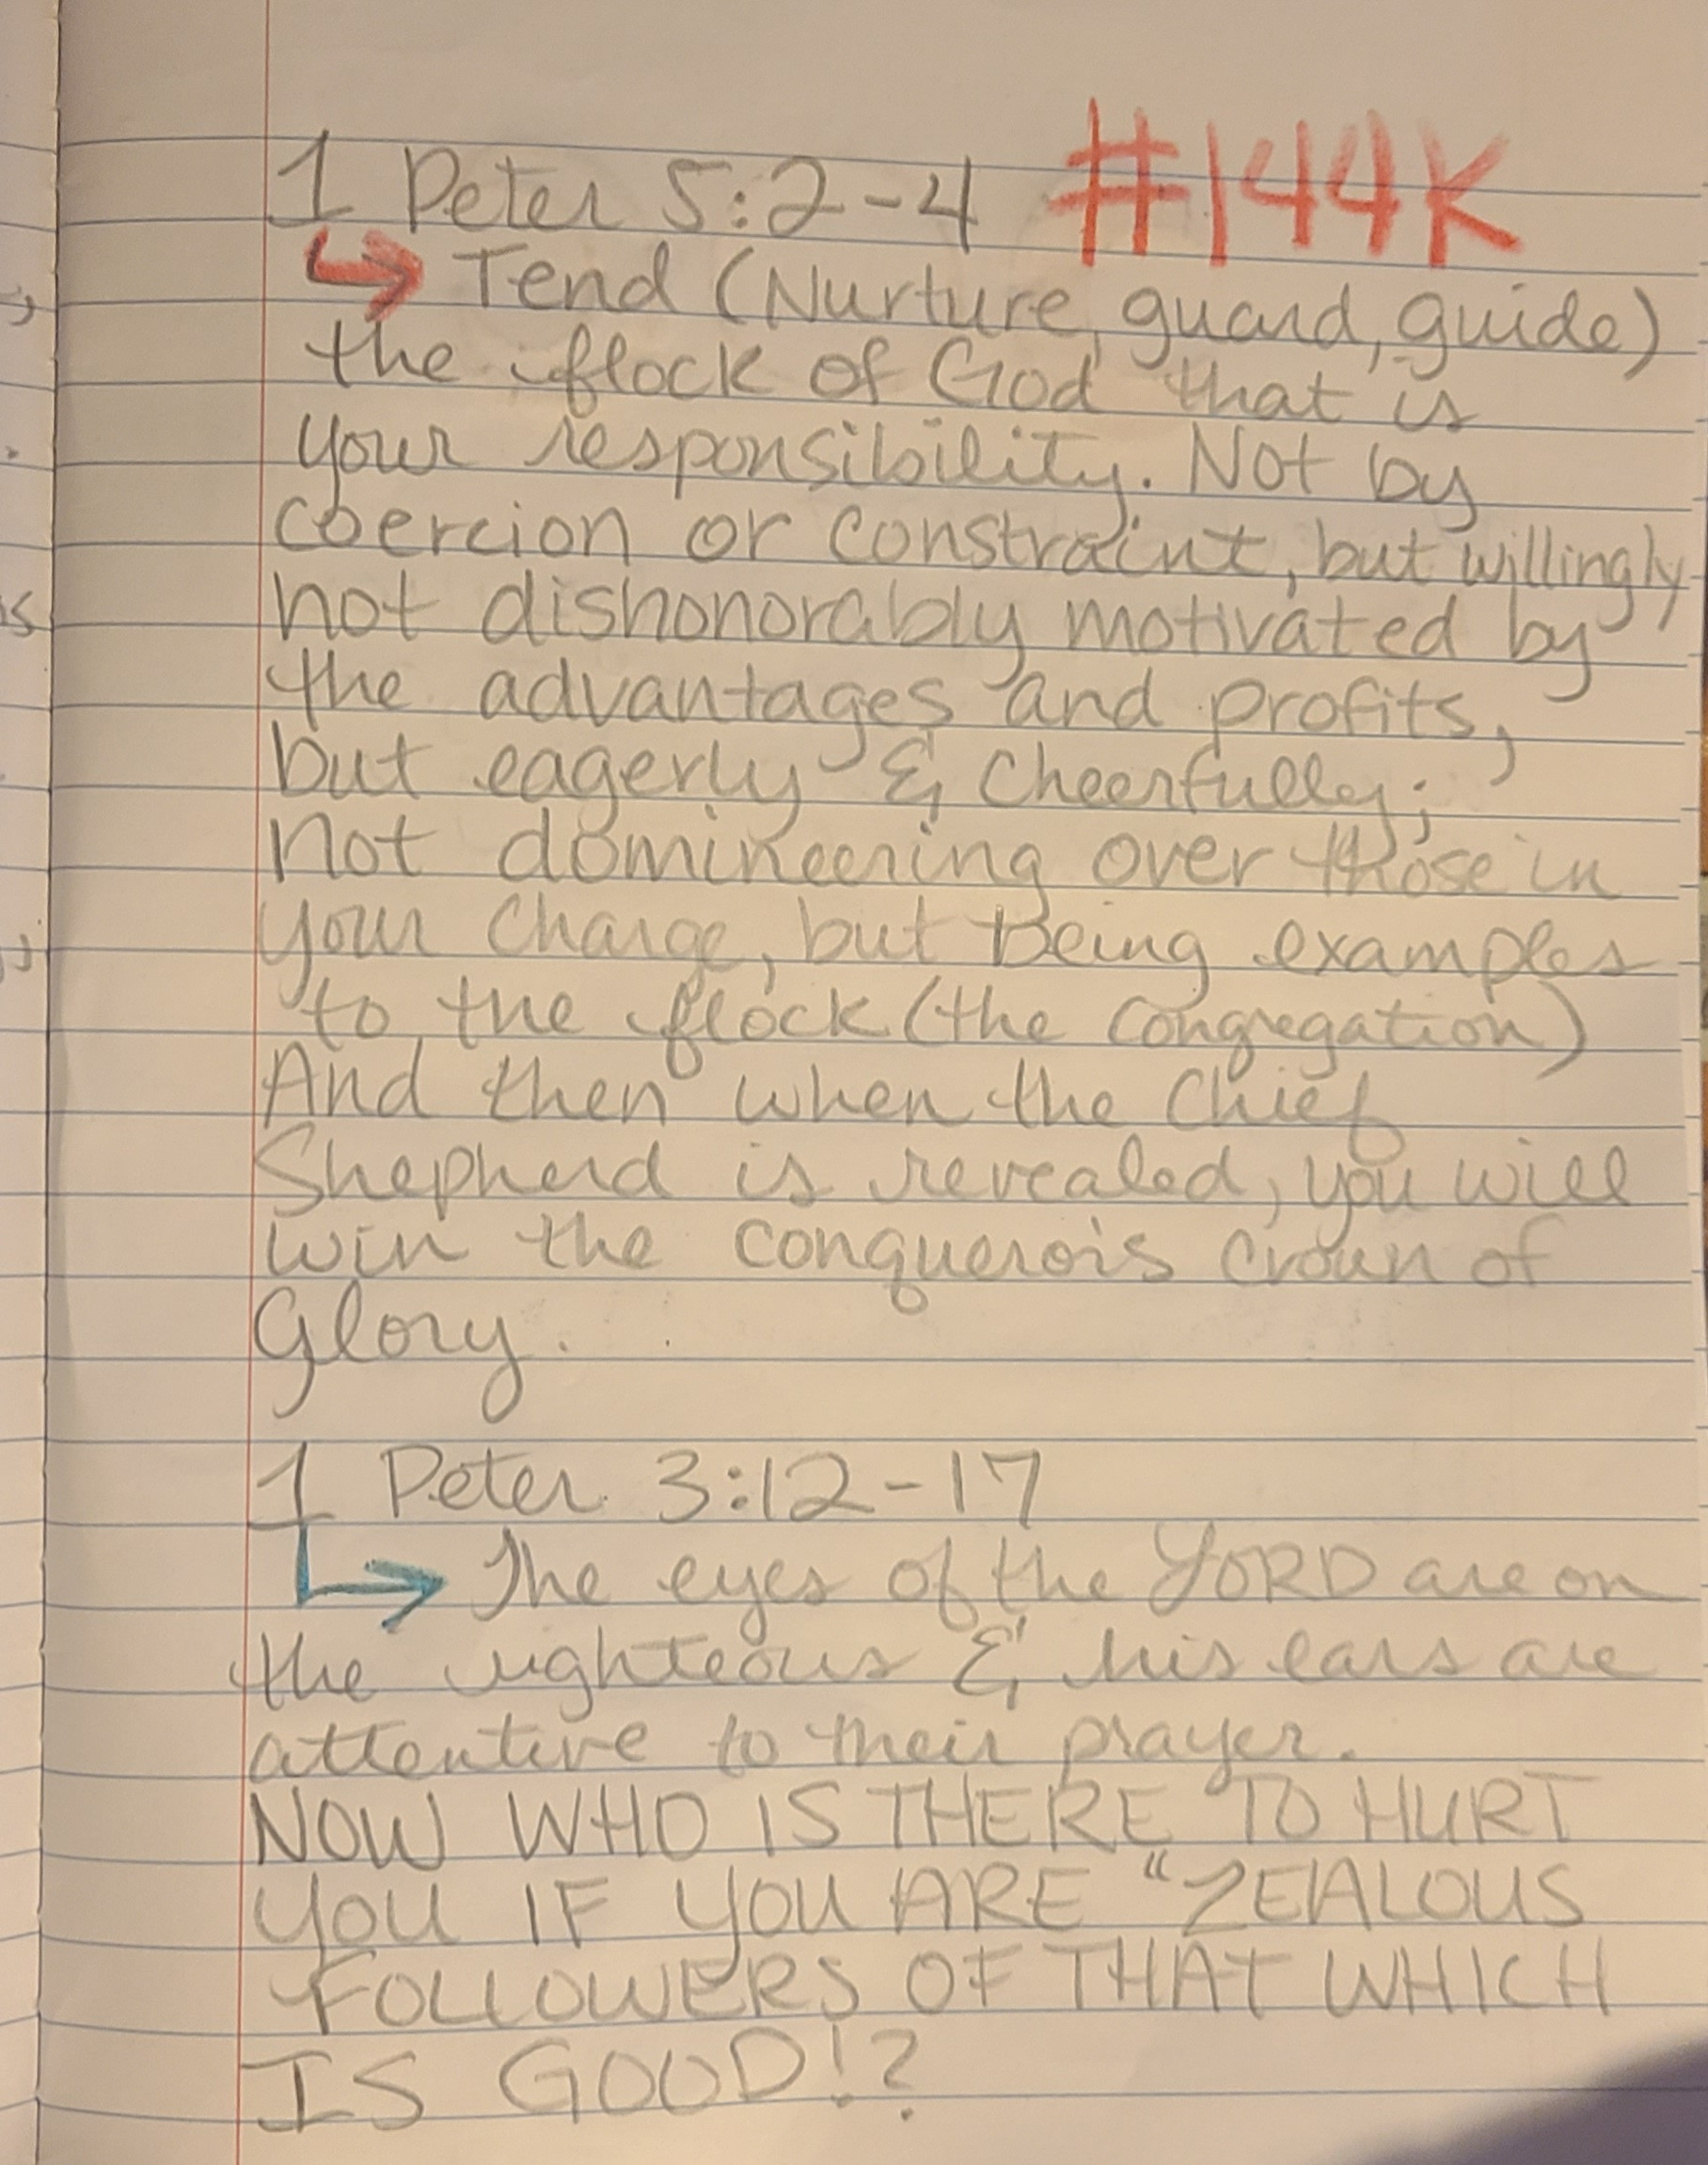 1 Peter 5:2-4 #144K
Tend (Nurture, guard, guide)
the flock of God that is
your responsibility. Not by
coercion or constraint, but willingly
not dishonorably motivated by
the advantages and profits,
but eagerly & cheerfully;
not domineering over those in
your charge, but being examples
to the flock (the congregation)
And then when the Chief
Shepherd is revealed, you will
win the conqueror's crown of
Glory.
1 Peter 3:12-17
The eyes of the LORD are on
the righteous & his ears are
attentive to their prayer.
NOW WHO IS THERE TO HURT
YOU IF YOU ARE "ZEALOUS
FOLLOWERS OF THAT WHICH
IS GOOD!?